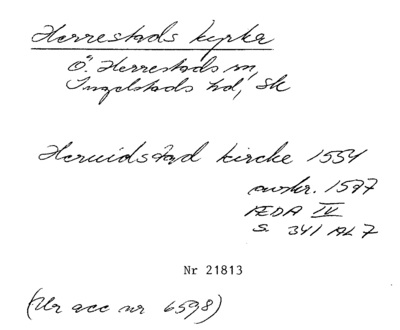 Herrestads kyrka
Ö. Herrestads sn,
Ingelstads hd, Sk
Heruidstad kircke 1554
avskr. 1597
ÆDA IV
s. 341 AL 7
Nr 21813
(Ur acc nr 6598)